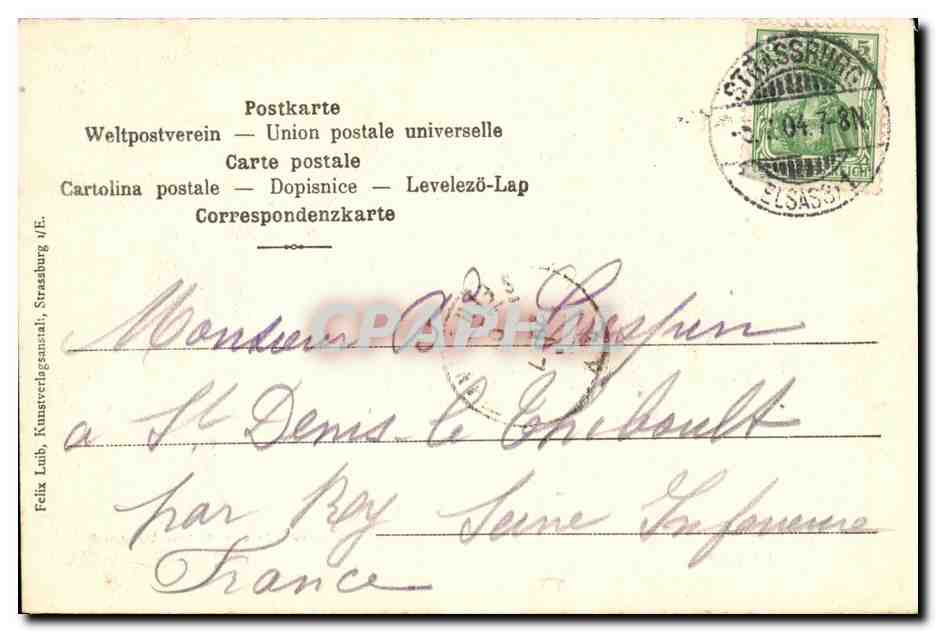 Postkarte
Weltpostverein — Union postale universelle
Carte postale
Cartolina postale — Dopisnice — Levelezö-Lap
Correspondenzkarte
STRASSBURG
04. 7-8N.
ELSASS
5
REICH
Felix Luib, Kunstverlagsanstalt, Strassburg i/E.
CPAPHIL
Monsieur Crespin
a St. Denis le Thiboult
par Rÿ Seine Inférieure
France